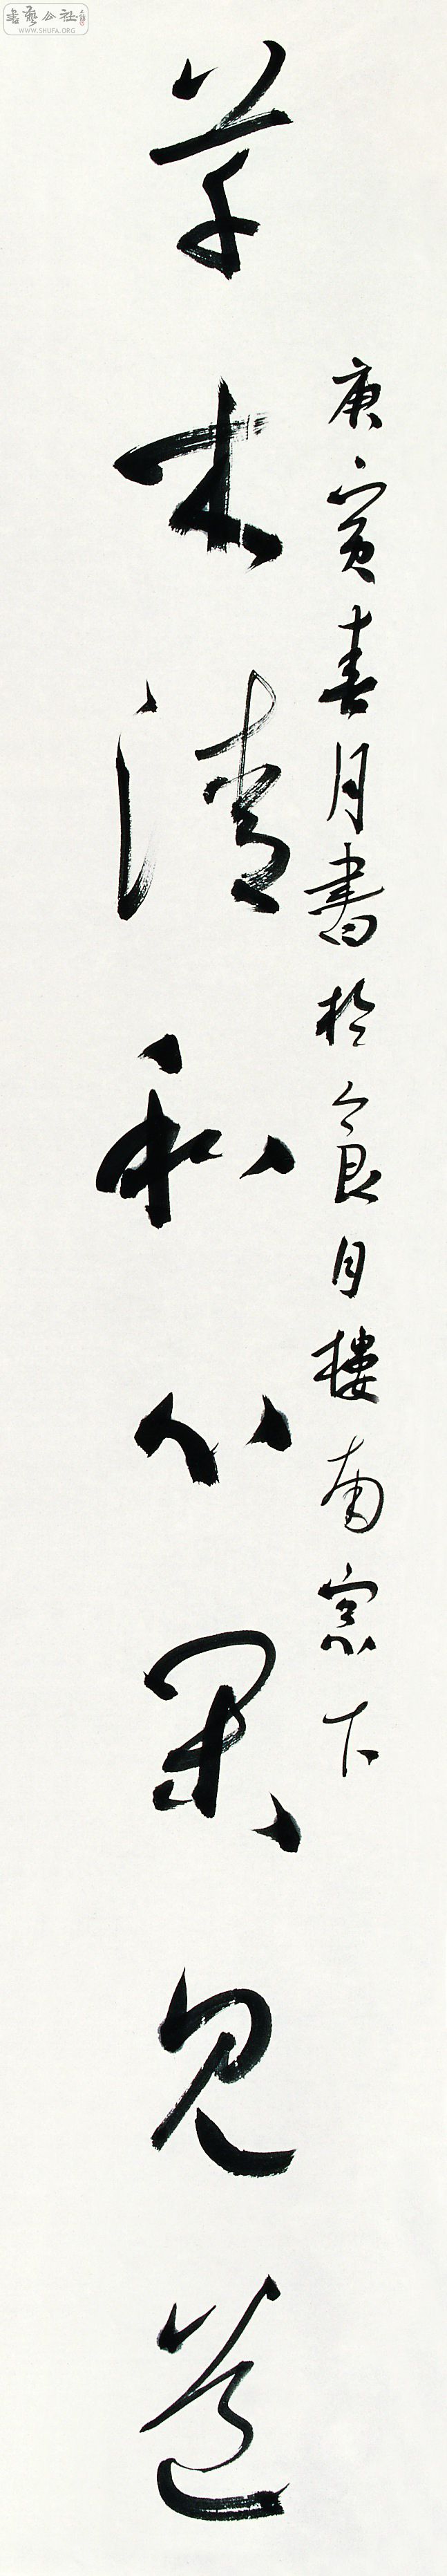 書藝公社
WWW.SHUFA.ORG
草木清和心閑見道
庚寅春月書於食月樓南窓下